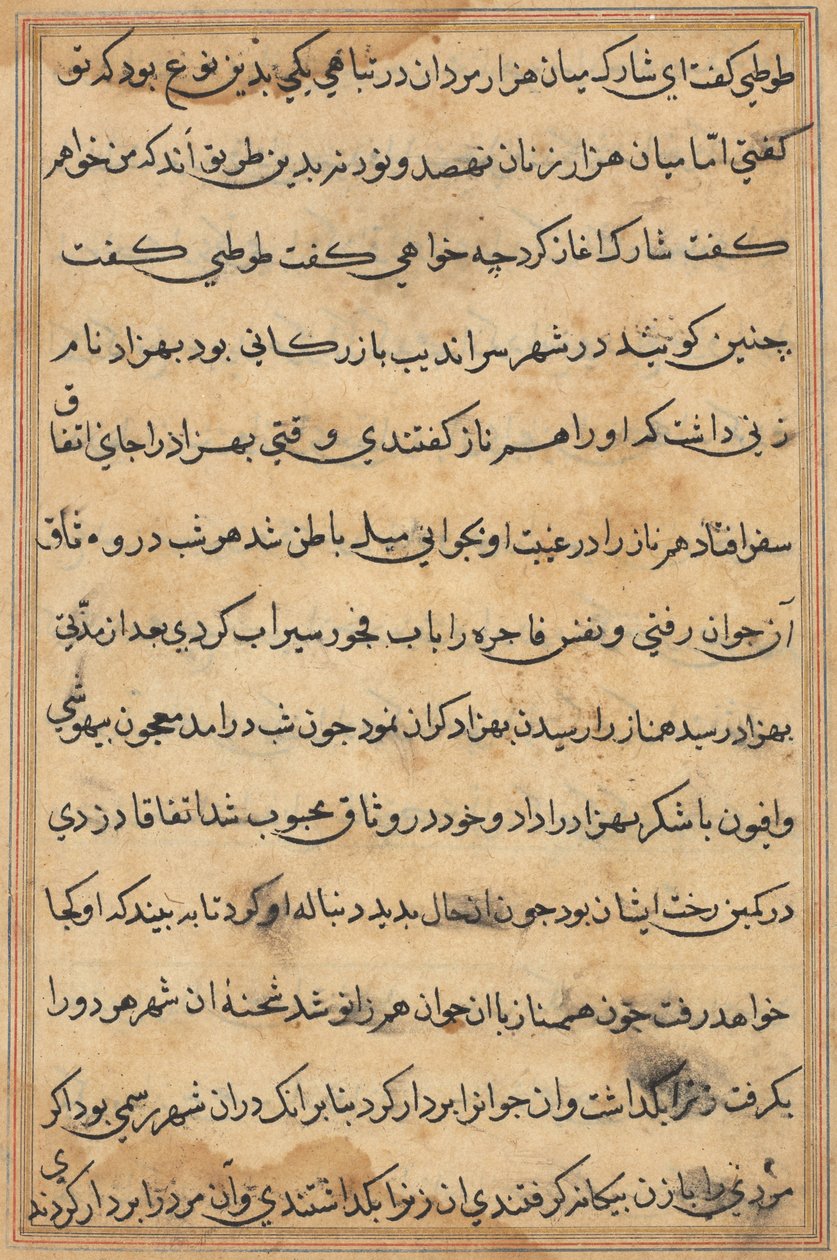 طوطي کفت اي شارک ميان هزار مردان در تباهي يکي بدين نوع بود که تو
کفتي امّا ميان هزار زنان نهصد و نود نه بدين طريق اند که من خواهم
کفت شارک اغاز کرد چه خواهي کفت طوطي کفت
چنين کويند در شهر سرانديب بازرکاني بود بهزاد نام
زني داشت که او را همناز کفتندي وقتي بهزاذ را جاي اتفاق
سفر افتاد همناز را در غيبت او بجواني ميل باطن شد هر شب در وثاق
آن جوان رفتي و نفس فاجره را باب فجور سيراب کردي بعد از مدّتي
بهزاد رسيد همناز را رسيدن بهزاد کران نمود جون شب درامد معجون بيهوشي
وافيون باشکر بهزاد را داد و خود در وثاق محبوب شد اتفاقا دزدي
در کمين رخت ايشان بود جون ان حال بديد دنباله او کرد تا به بيند که او کجا
خواهد رفت جون همناز با ان جوان همزانو شد شحنهٔ ان شهر هر دو را
بکرفت زنرا بکداشت وان جوانرا بردار کرد بنا برانک دران شهر رسمي بود اکر
مردي را با زن بيکانه کرفتندي ان زنرا بکداشتندي وآن مرد را بردار کردندي